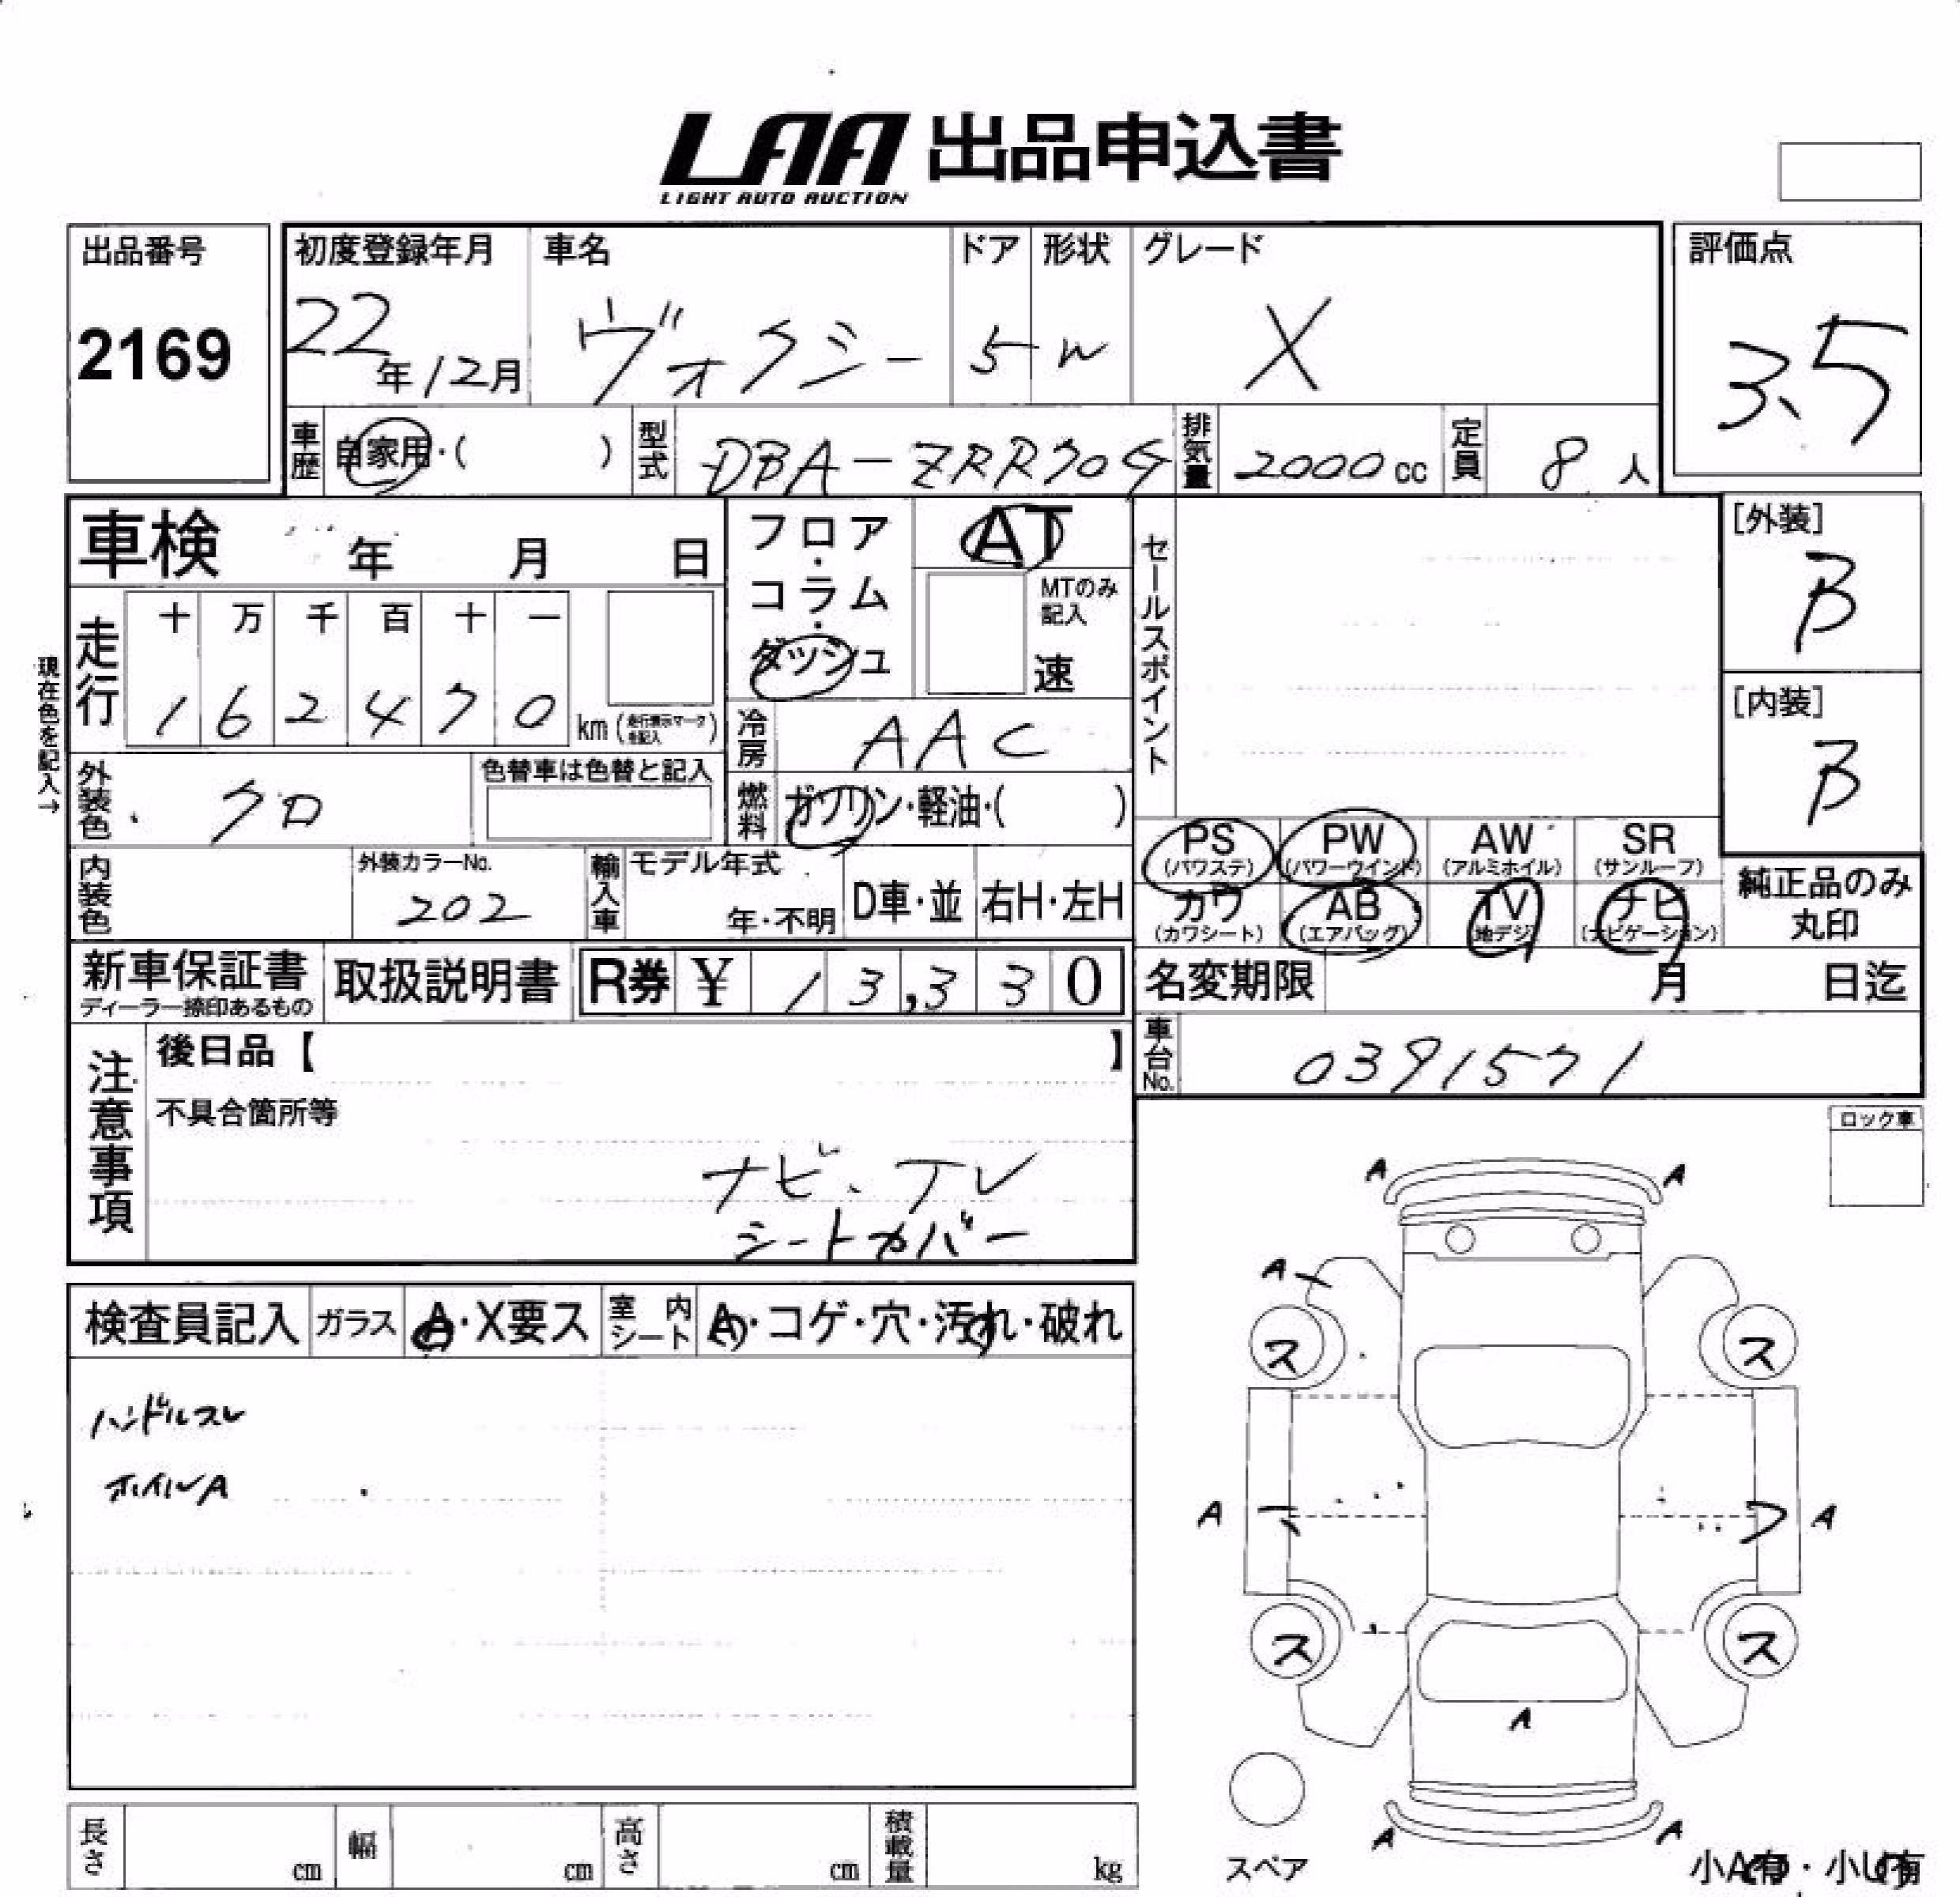 LAA 出品申込書
LIGHT AUTO AUCTION
出品番号
2169
初度登録年月
22年12月
車名
ヴォクシー
ドア
5
形状
W
グレード
X
評価点
3.5
車歴
自家用・( )
型式
DBA-ZRR70G
排気量
2000cc
定員
8人
車検 年 月 日
フロア・コラム・ダッシュ
AT
MTのみ記入
速
セールスポイント
[外装]
B
[内装]
B
現在色を記入→
走行
十 万 千 百 十 一
1 6 2 4 7 0 km (走行表示マークを記入)
冷房
AAC
外装色
クロ
色替車は色替と記入
燃料
ガソリン・軽油・( )
PS (パワステ)
PW (パワーウインド)
AW (アルミホイル)
SR (サンルーフ)
カワ (カワシート)
AB (エアバッグ)
TV (地デジ)
ナビ (ナビゲーション)
純正品のみ丸印
内装色
外装カラーNo.
202
輸入車
モデル年式
年・不明
D車・並
右H・左H
新車保証書
ディーラー捺印あるもの
取扱説明書
R券 ¥ 13,330
名変期限 月 日迄
車台No.
0391571
注意事項
後日品【 】
不具合箇所等
ナビ、テレ
シートカバー
ロック車
検査員記入
ガラス
A・X要ス
室内シート
A・コゲ・穴・汚れ・破れ
ハンドルスレ
ホイルA
A A
A
ス ス
A A
ス ス
A
A A
スペア
小A有・小U有
長さ cm
幅 cm
高さ cm
積載量 kg